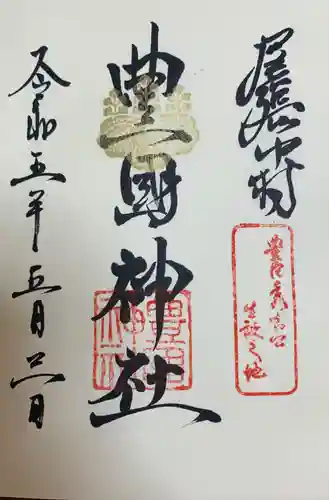 尾張中村
豊臣秀吉公
生誕之地
豊國神社
豊國神社
令和五年五月六日